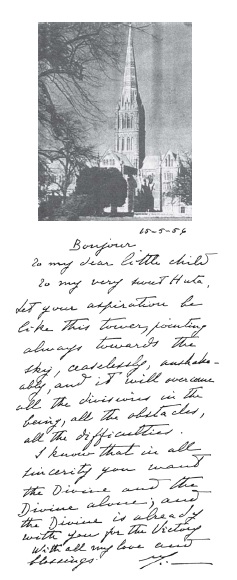 15-5-56
Bonjour
To my dear little child
To my very sweet Huta,
Let your aspiration be
like this tower, pointing
always towards the
sky, ceaselessly, unshake-
ably, and it will overcome
all the divisions in the
being, all the obstacles,
all the difficulties.
I know that in all
sincerity you want
the Divine and the
Divine alone; and
the Divine is already
with you for the Victory
With all my love and
blessings